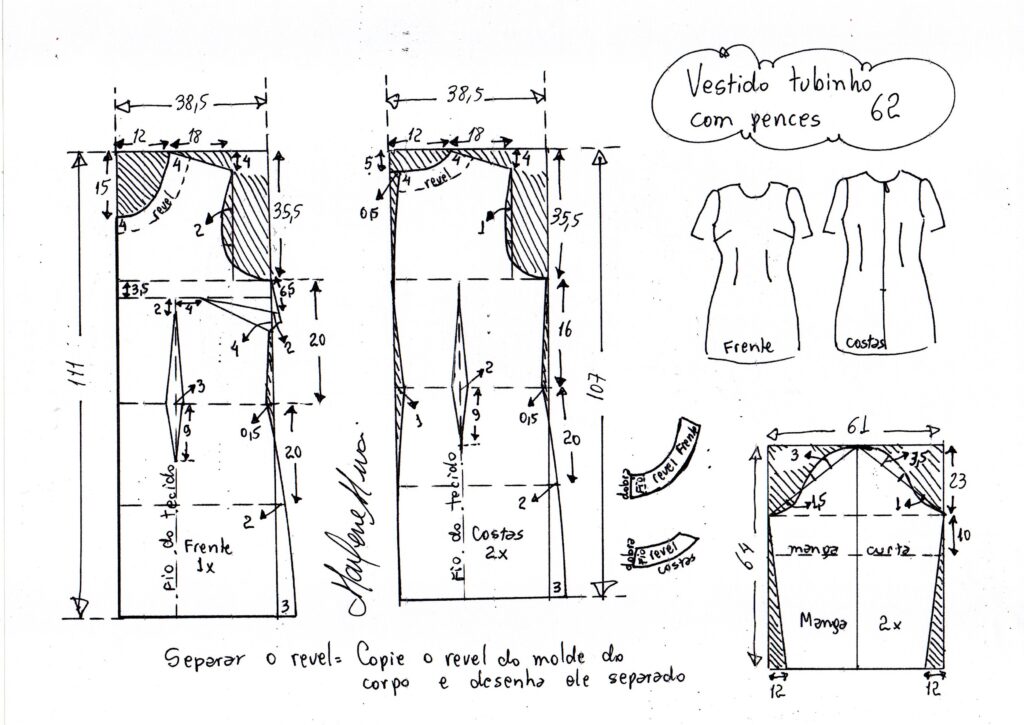 Vestido tubinho
com pences 62
38,5
12 18
4
4
15
revel
4
2
35,5
3,5
6,5
2 4
4
2
20
3
9
0,5
20
2
111
Fio do tecido
Frente
1x
3
38,5
12 18
5
4
4
revel
0,5
1
35,5
16
2
9
1
0,5
20
2
107
Fio do tecido
Costas
2x
3
Frente
costas
dobra
Fio
revel Frente
dobra
Fio
revel
costas
61
3
3,5
1,5
1
23
10
64
manga curta
Manga 2x
12
12
Separar o revel= Copie o revel do molde do
corpo e desenha ele separado